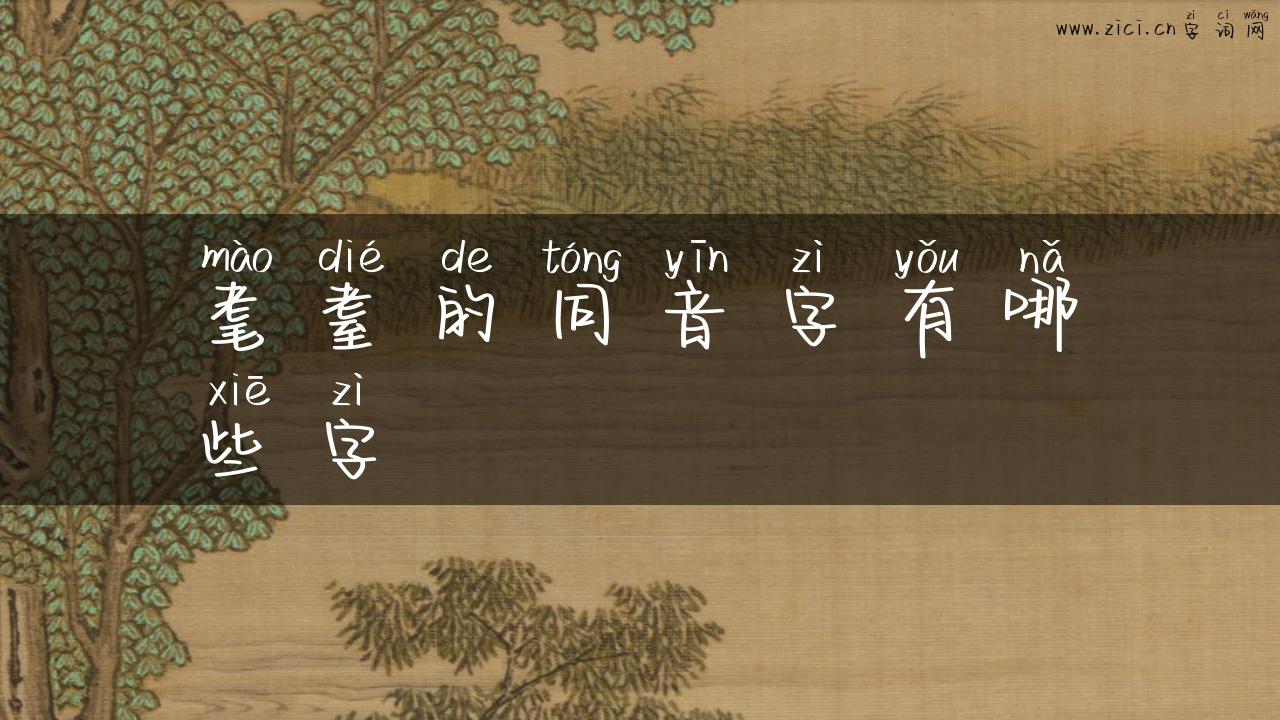 zì cí wǎng
www.zici.cn字词网
mào dié de tóng yīn zì yǒu nǎ
耄耋的同音字有哪
xiē zì
些字